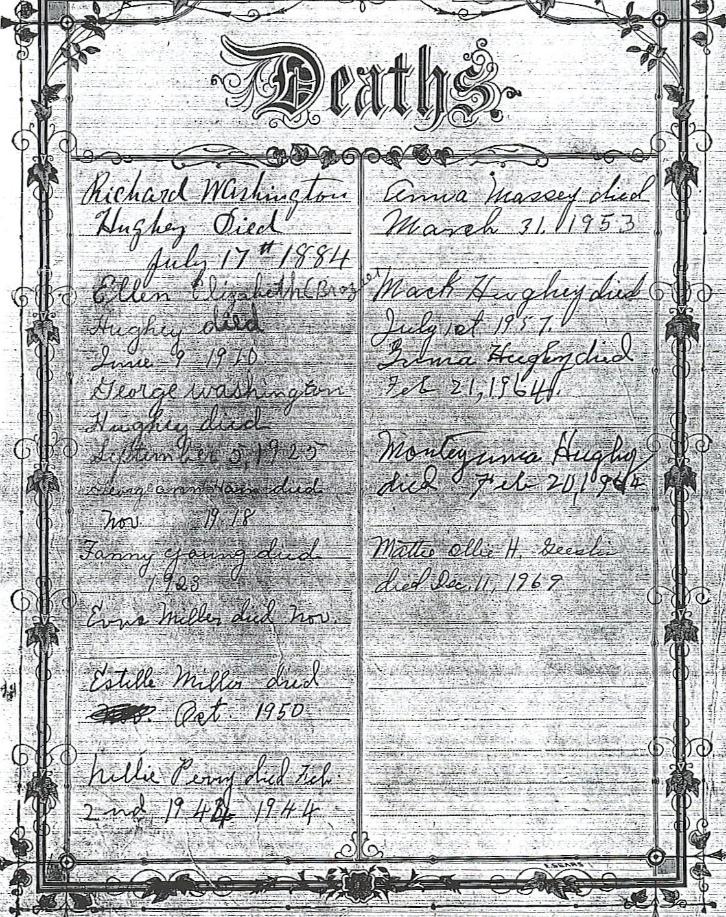 Deaths
Richard Washington
Hughey Died
July 17th 1884
Ellen Elizabeth (Brozier)
Hughey died
June 9 1910
George Washington
Hughey died
September 5, 1925
died
Nov 1918
Fanny Young died
1923
Miller died Nov
Estelle Miller died
Oct. 1950
Lillie Perry died Feb.
2nd, 1944 1944
Anna Massey died
March 31, 1953
Mack Hughey died
July 1st 1957.
Hughey died
Feb 21, 1964
Montezuma Hughey
died Feb 20, 1964
Mattie Ollie H. Geeslin
died Dec. 11, 1969
F. SEARS